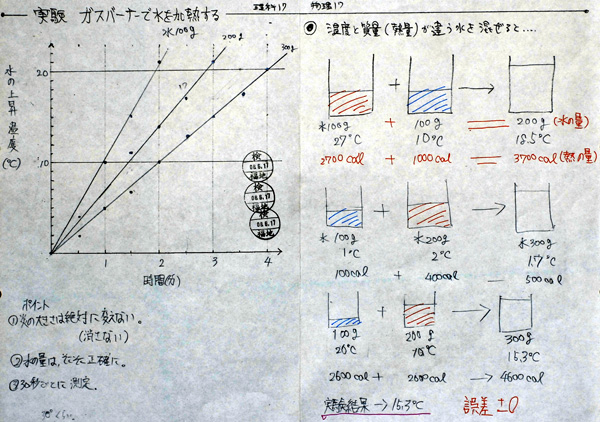 実験 ガスバーナーで水を加熱する
理科17
物理17
水100g
200g
300g
水の上昇温度(℃)
20
10
0
1
2
3
4
時間(分)
検
08.6.17
福地
検
08.6.17
福地
検
08.6.17
福地
ポイント
①炎の大きさは絶対に変えない。
(消さない)
②水の量は、それぞれ正確に。
③30秒ごとに測定。
◎ 温度と質量(熱量)が違う水を混ぜると....
+ →
水100g + 100g = 200g (水の量)
27℃ 10℃ 18.5℃
2700cal + 1000cal = 3700cal (熱の量)
+ →
水100g 水200g 水300g
1℃ 2℃ 1.7℃
100cal + 400cal — 500cal
+ →
100g 200g 300g
26℃ 10℃ 15.3℃
2600cal + 2000cal → 4600cal
実験結果→15.3℃ 誤差 ±0